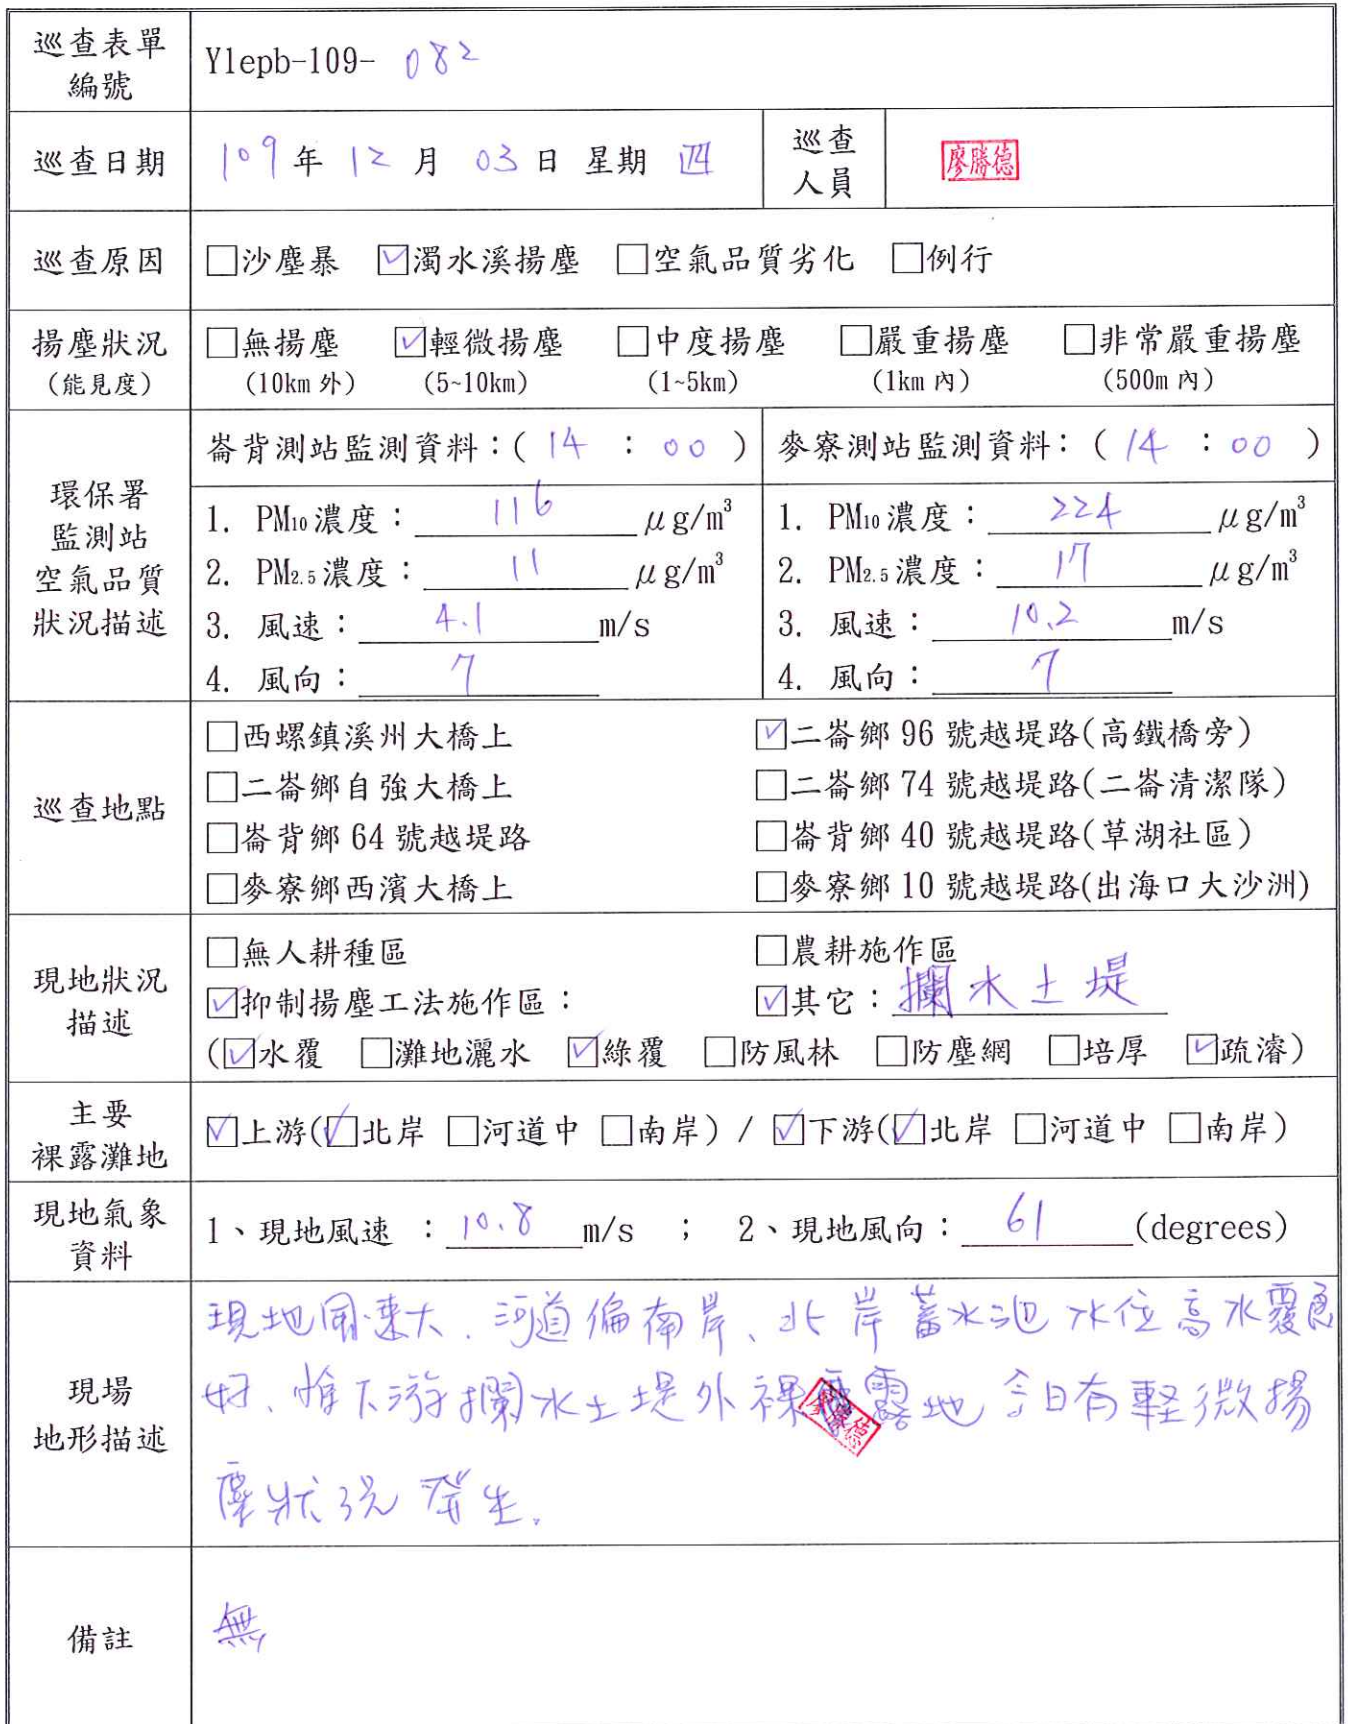 巡查表單
編號
Ylepb-109- 082
巡查日期
109年 12 月 03日 星期 四
巡查
人員
廖勝德
巡查原因
□沙塵暴 ☑濁水溪揚塵 □空氣品質劣化 □例行
揚塵狀況
(能見度)
□無揚塵 ☑輕微揚塵 □中度揚塵 □嚴重揚塵 □非常嚴重揚塵
(10km 外) (5~10km) (1~5km) (1km 內) (500m 內)
環保署
監測站
空氣品質
狀況描述
崙背測站監測資料：( 14 : 00 )
麥寮測站監測資料：( 14 : 00 )
1. PM10濃度：116 μg/m³
2. PM2.5濃度：11 μg/m³
3. 風速：4.1 m/s
4. 風向：7
1. PM10濃度：224 μg/m³
2. PM2.5濃度：17 μg/m³
3. 風速：10.2 m/s
4. 風向：7
巡查地點
□西螺鎮溪州大橋上 ☑二崙鄉 96 號越堤路(高鐵橋旁)
□二崙鄉自強大橋上 □二崙鄉 74 號越堤路(二崙清潔隊)
□崙背鄉 64 號越堤路 □崙背鄉 40 號越堤路(草湖社區)
□麥寮鄉西濱大橋上 □麥寮鄉 10 號越堤路(出海口大沙洲)
現地狀況
描述
□無人耕種區 □農耕施作區
☑抑制揚塵工法施作區： ☑其它：攔水土堤
(☑水覆 □灘地灑水 ☑綠覆 □防風林 □防塵網 □培厚 ☑疏濬)
主要
裸露灘地
☑上游(☑北岸 □河道中 □南岸) / ☑下游(☑北岸 □河道中 □南岸)
現地氣象
資料
1、現地風速 ：10.8 m/s ； 2、現地風向：61 (degrees)
現場
地形描述
現地風速大、河道偏南岸、北岸蓄水池水位高水覆良
好、惟下游攔水土堤外裸露地今日有輕微揚
塵狀況發生.
備註
無